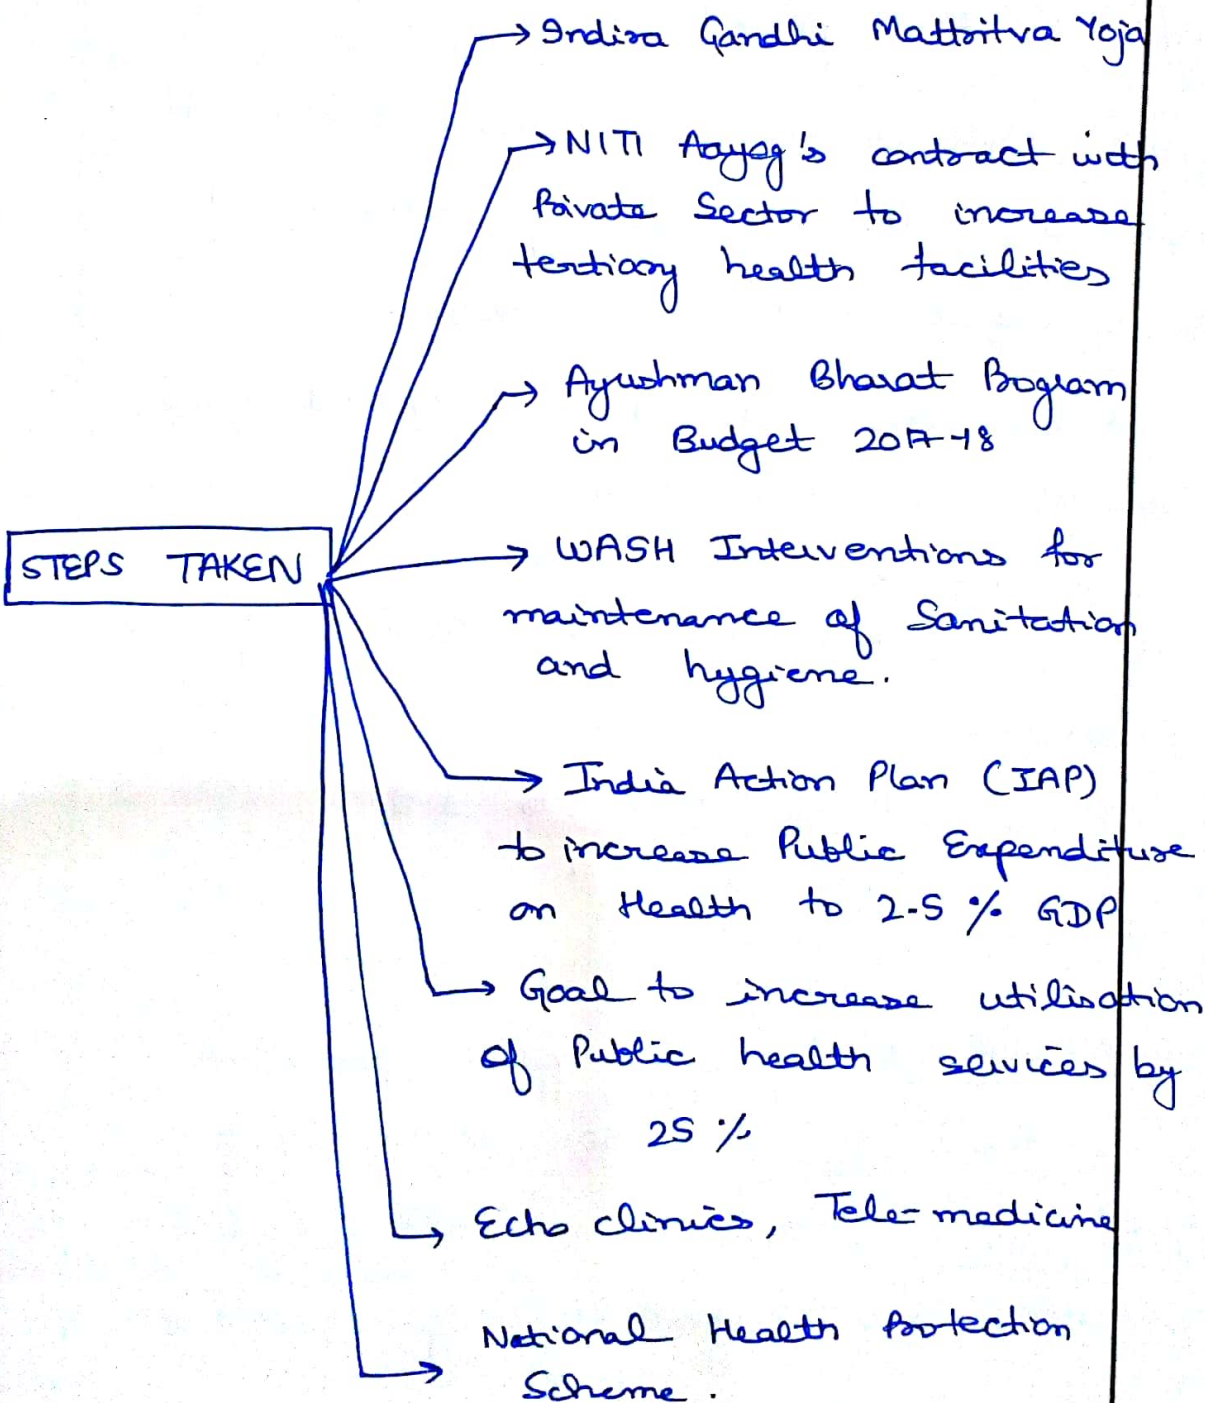 Indira Gandhi Mattritva Yoja
NITI Aayog's contract with
Private Sector to increase
tertiary health facilities
Ayushman Bharat Program
in Budget 2017-18
STEPS TAKEN
WASH Interventions for
maintenance of Sanitation
and hygiene.
India Action Plan (IAP)
to increase Public Expenditure
on Health to 2.5 % GDP
Goal to increase utilisation
of Public health services by
25 %
Echo clinics, Tele-medicine
National Health Protection
Scheme.